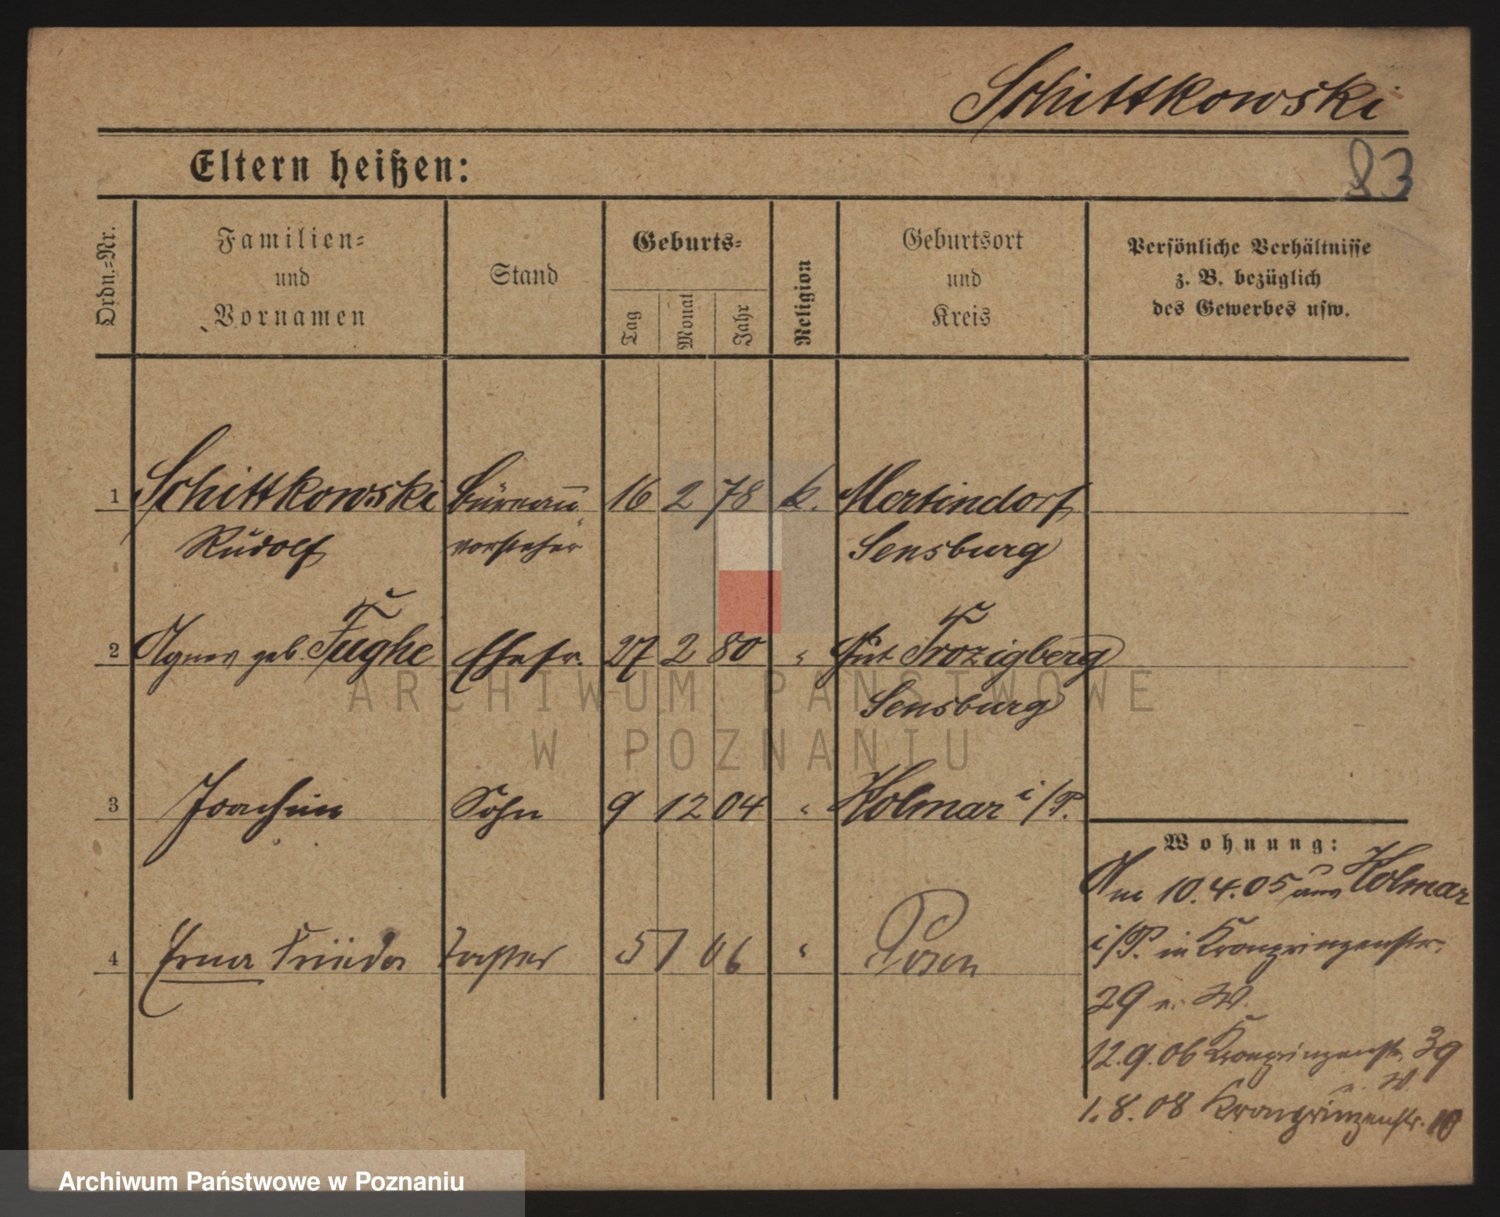 Schittkowski
Eltern heißen:
83
Ordn.-Nr.
Familien-
und
Vornamen
Stand
Geburts-
Tag
Monat
Jahr
Religion
Geburtsort
und
Kreis
Persönliche Verhältnisse
z. B. bezüglich
des Gewerbes usw.
1 Schittkowski Büreau 16 2 78 k. Mertindorf
Rudolf vorsteher Sensburg
2 Agnes geb. Ehefr. 27 2 80 " Gut
Sensburg
3 Joachim Sohn 9 12 04 " Kolmar i/P.
4 Erna Frieda Tochter 5 7 06 " Posen
Wohnung:
Am 10.4.05 aus Kolmar
i/P. in Kronprinzenstr.
29 n. W.
12.9.06 Kronprinzenstr. 39
n. W
1.8.08 Kronprinzenstr.
ARCHIWUM PAŃSTWOWE
W POZNANIU
Archiwum Państwowe w Poznaniu